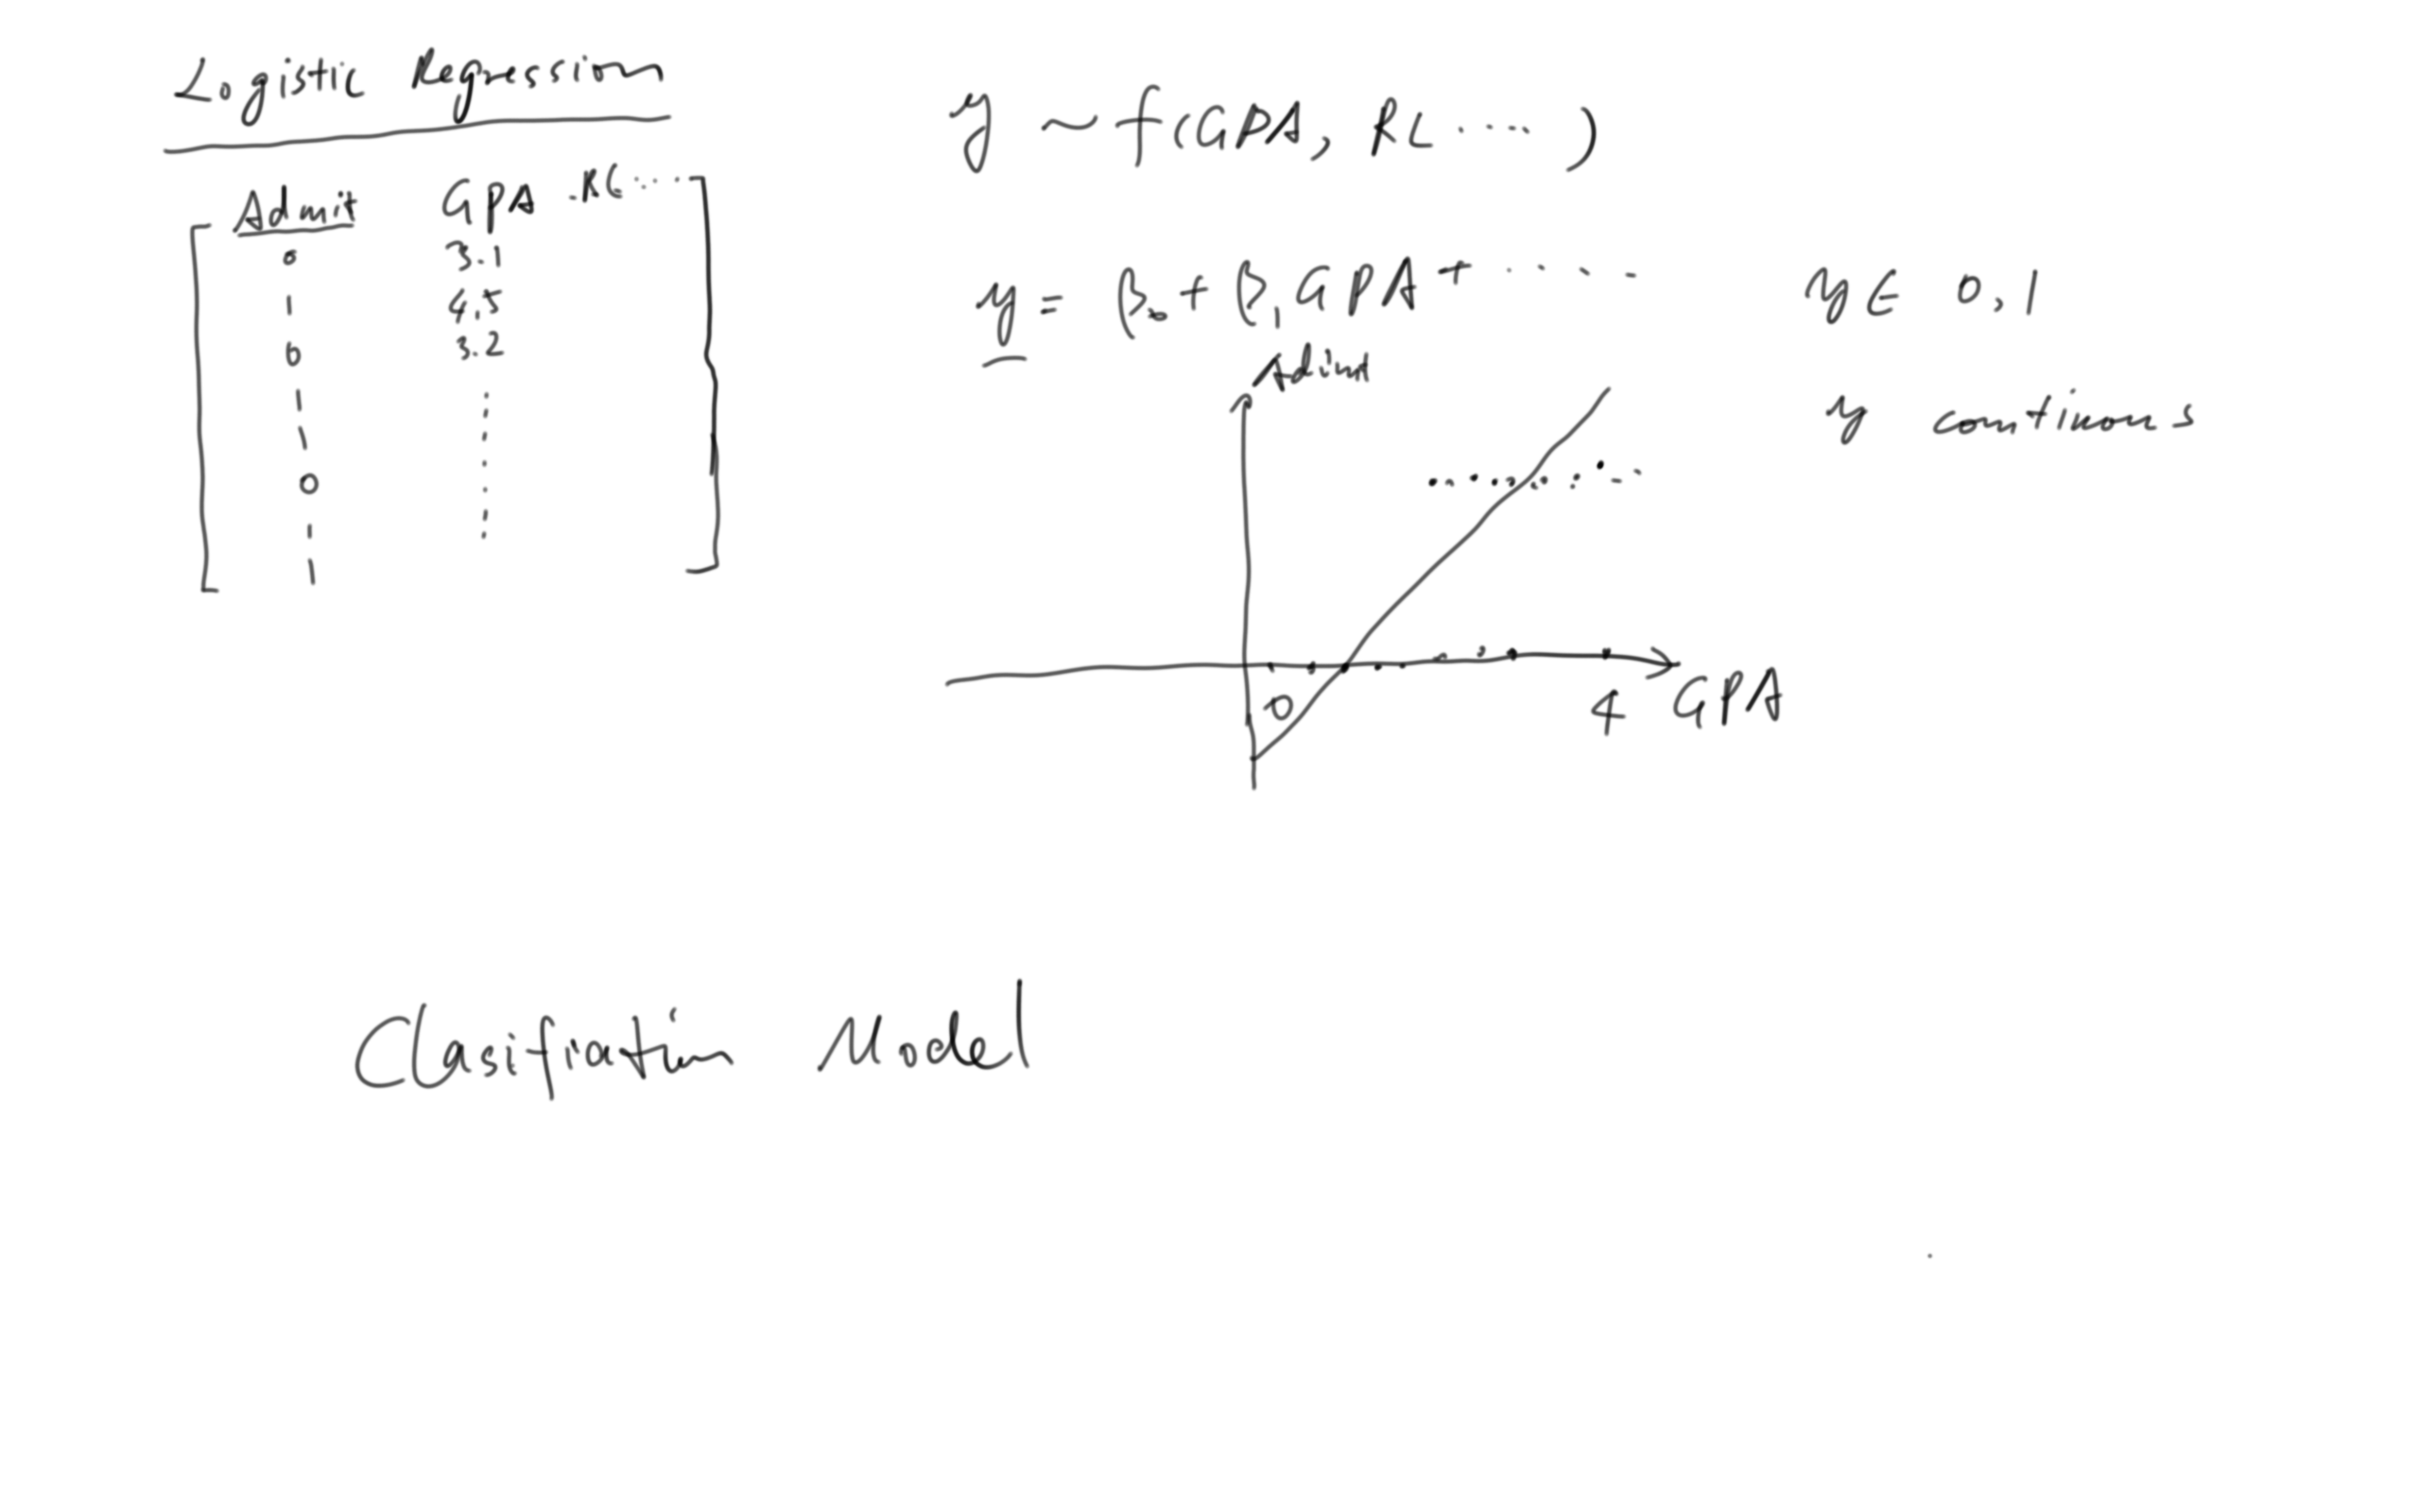 Logistic Regression
Admit GPA RL ....
0 3.1
1 4.5
0 3.2
1
1
0
1
1
y ~ f(GPA, RL ....)
y = β₀ + β₁ GPA + ....
y ∈ 0, 1
y continuous
Admit
0 4 GPA
Clasification Model